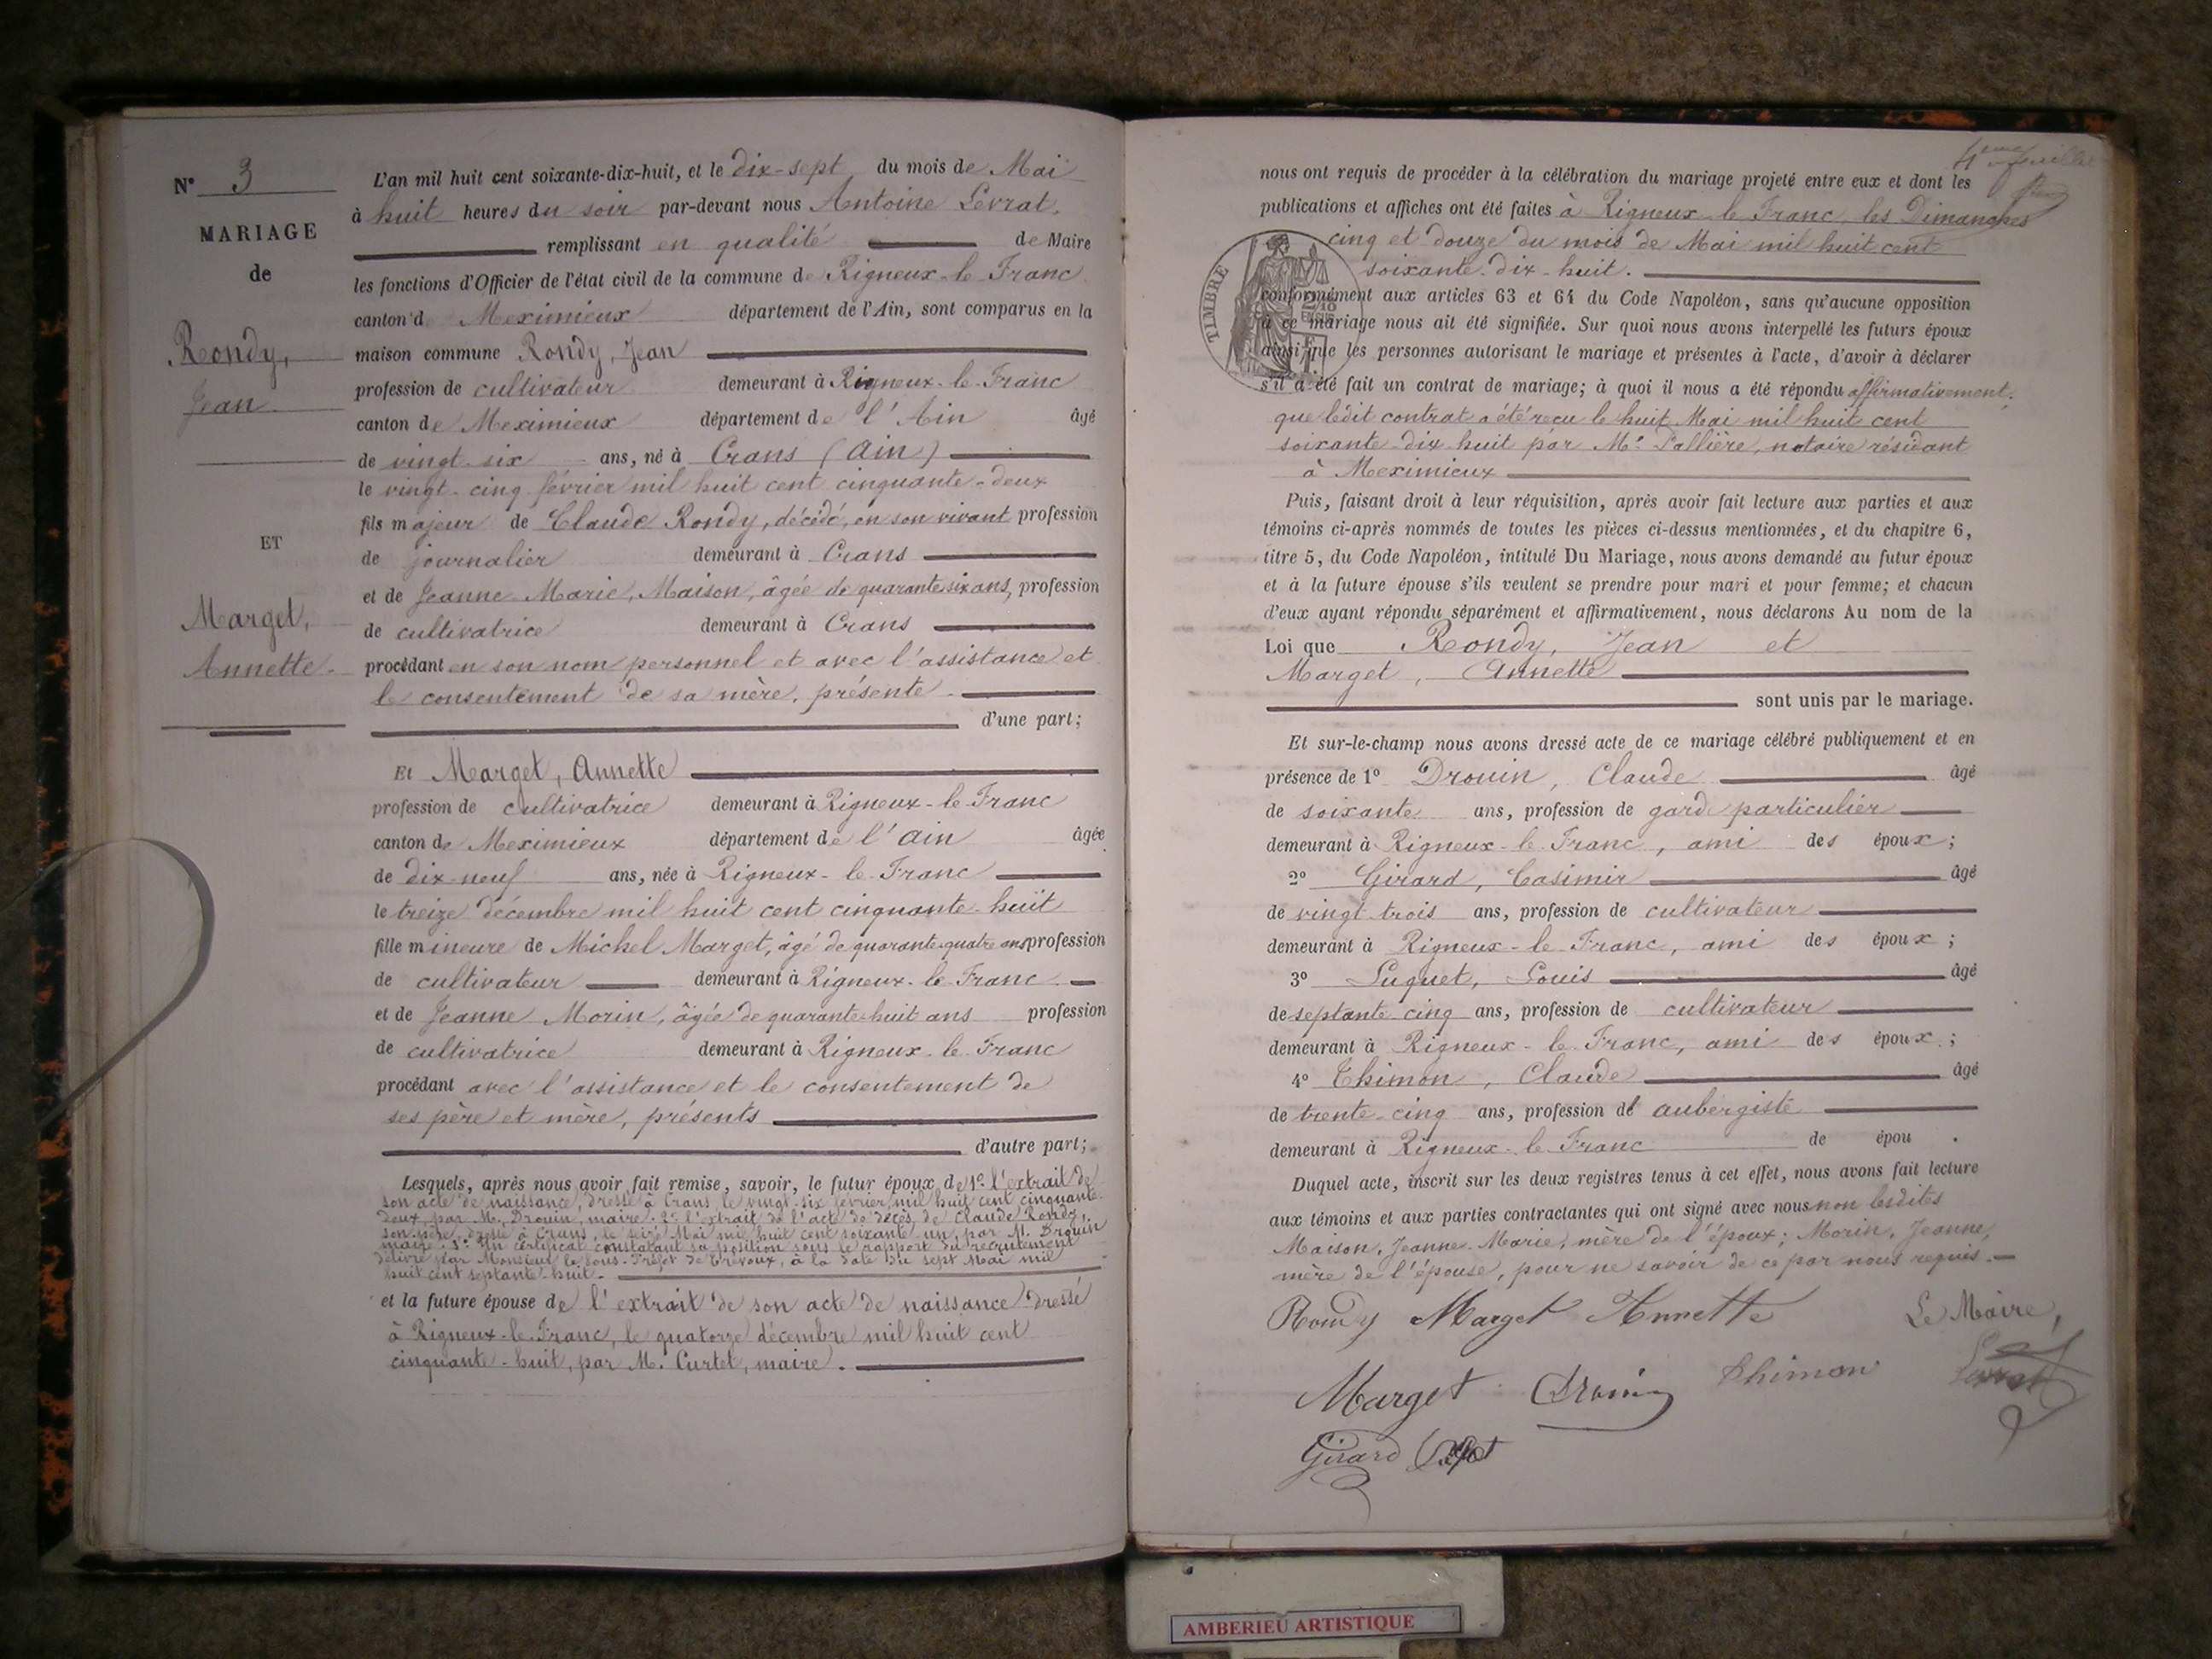 N° 3
MARIAGE
de
Rondy,
Jean
ET
Marget,
Annette.
L'an mil huit cent soixante-dix-huit, et le dix-sept du mois de Mai
à huit heures du soir par-devant nous Antoine Levrat,
remplissant en qualité de Maire
les fonctions d'Officier de l'état civil de la commune de Rigneux-le-Franc
canton d Meximieux département de l'Ain, sont comparus en la
maison commune Rondy, Jean
profession de cultivateur demeurant à Rigneux-le-Franc
canton de Meximieux département de l'Ain âgé
de vingt-six ans, né à Crans (Ain)
le vingt-cinq février mil huit cent cinquante-deux
fils majeur de Claude Rondy, décédé, en son vivant profession
de journalier demeurant à Crans
et de Jeanne Marie, Maison, âgée de quarante six ans, profession
de cultivatrice demeurant à Crans
procédant en son nom personnel et avec l'assistance et
le consentement de sa mère, présente
d'une part;
Et Marget, Annette
profession de cultivatrice demeurant à Rigneux-le-Franc
canton de Meximieux département de l'Ain âgée
de dix-neuf ans, née à Rigneux-le-Franc
le treize décembre mil huit cent cinquante-huit
fille mineure de Michel Marget, âgé de quarante-quatre ans profession
de cultivateur demeurant à Rigneux-le-Franc
et de Jeanne Morin, âgée de quarante-huit ans profession
de cultivatrice demeurant à Rigneux-le-Franc
procédant avec l'assistance et le consentement de
ses père et mère, présents
d'autre part;
Lesquels, après nous avoir fait remise, savoir, le futur époux de 1° l'extrait de
son acte de naissance, dressé à Crans, le vingt-six février mil huit cent cinquante-
deux par M. Drouin, maire. 2° l'extrait de l'acte de décès de Claude Rondy,
son père, dressé à Crans, le seize Mai mil huit cent soixante un, par M. Drouin
maire. 3° Un certificat constatant sa position sous le rapport du recrutement
délivré par Monsieur le Sous-Préfet de Trévoux, à la date du sept Mai mil
huit cent septante-huit.
et la future épouse de l'extrait de son acte de naissance dressé
à Rigneux-le-Franc, le quatorze décembre mil huit cent
cinquante-huit, par M. Curtet, maire.
4eme feuillet
nous ont requis de procéder à la célébration du mariage projeté entre eux et dont les
publications et affiches ont été faites à Rigneux-le-Franc, les Dimanches
cinq et douze du mois de Mai mil huit cent
soixante-dix-huit.
TIMBRE
conformément aux articles 63 et 64 du Code Napoléon, sans qu'aucune opposition
à ce mariage nous ait été signifiée. Sur quoi nous avons interpellé les futurs époux
ainsi que les personnes autorisant le mariage et présentes à l'acte, d'avoir à déclarer
s'il a été fait un contrat de mariage; à quoi il nous a été répondu affirmativement;
que ledit contrat a été reçu le huit Mai mil huit cent
soixante-dix-huit par Me Pallière, notaire résidant
à Meximieux
Puis, faisant droit à leur réquisition, après avoir fait lecture aux parties et aux
témoins ci-après nommés de toutes les pièces ci-dessus mentionnées, et du chapitre 6,
titre 5, du Code Napoléon, intitulé Du Mariage, nous avons demandé au futur époux
et à la future épouse s'ils veulent se prendre pour mari et pour femme; et chacun
d'eux ayant répondu séparément et affirmativement, nous déclarons Au nom de la
Loi que Rondy, Jean et
Marget, Annette
sont unis par le mariage.
Et sur-le-champ nous avons dressé acte de ce mariage célébré publiquement et en
présence de 1° Drouin, Claude âgé
de soixante ans, profession de garde particulier
demeurant à Rigneux-le-Franc, ami des époux;
2° Girard, Casimir âgé
de vingt trois ans, profession de cultivateur
demeurant à Rigneux-le-Franc, ami des époux;
3° Luquet, Louis âgé
de septante cinq ans, profession de cultivateur
demeurant à Rigneux-le-Franc, ami des époux;
4° Thimon, Claude âgé
de trente-cinq ans, profession de aubergiste
demeurant à Rigneux-le-Franc de épou .
Duquel acte, inscrit sur les deux registres tenus à cet effet, nous avons fait lecture
aux témoins et aux parties contractantes qui ont signé avec nous non lesdites
Maison, Jeanne-Marie, mère de l'époux; Morin, Jeanne,
mère de l'épouse, pour ne savoir de ce par nous requis.
Rondy Marget Annette Le Maire,
Marget Drouin Thimon Levrat
Girard
AMBERIEU ARTISTIQUE